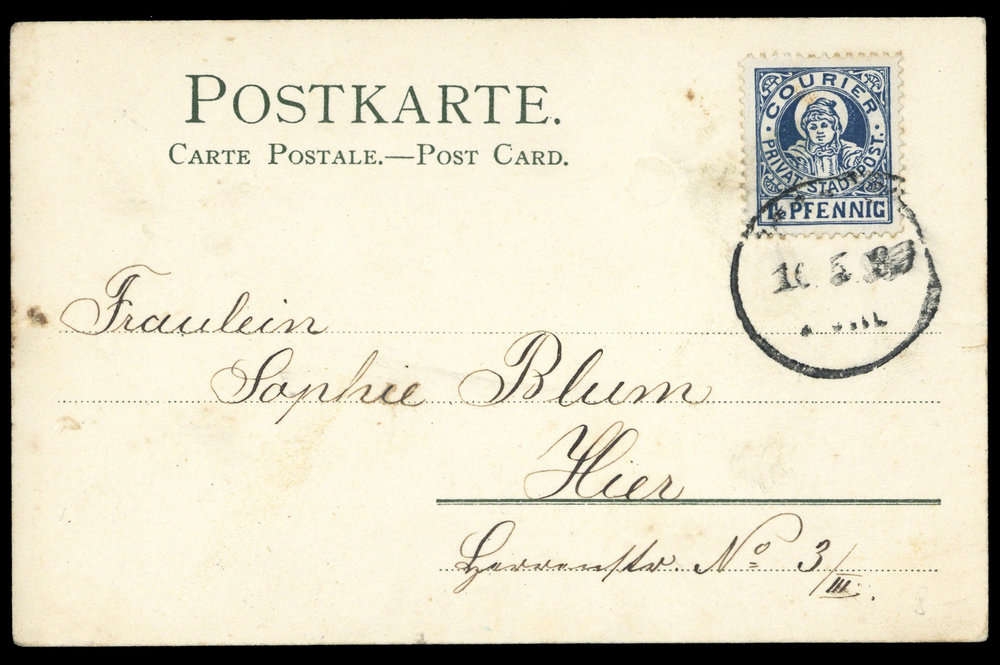 POSTKARTE.
CARTE POSTALE.—POST CARD.
· COURIER ·
PRIVAT-STADTPOST.
1½ PFENNIG
Fraulein
Sophie Blum
Hier
Herrenstr. No 3/III.